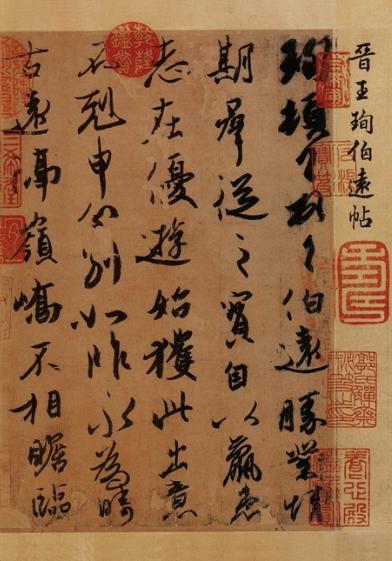 晉王珣伯遠帖
珣頓首頓首伯遠勝業情
期羣從之寶自以羸患
志在優遊始獲此出意
不剋申分別如昨永為疇
古遠隔嶺嶠不相瞻臨
乾隆鑑賞